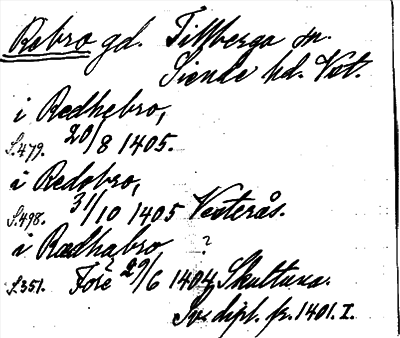 Rebro gd. Tillberga sn.
Siende hd. Vst.
i Rædhebro,
S.479. 20/8 1405.
i Redobro,
S.498. 31/10 1405 Vesterås.
i Rædhabro ?
S.351. Före 29/6 1404, Skultuna.
Sv. dipl. fr. 1401. I.